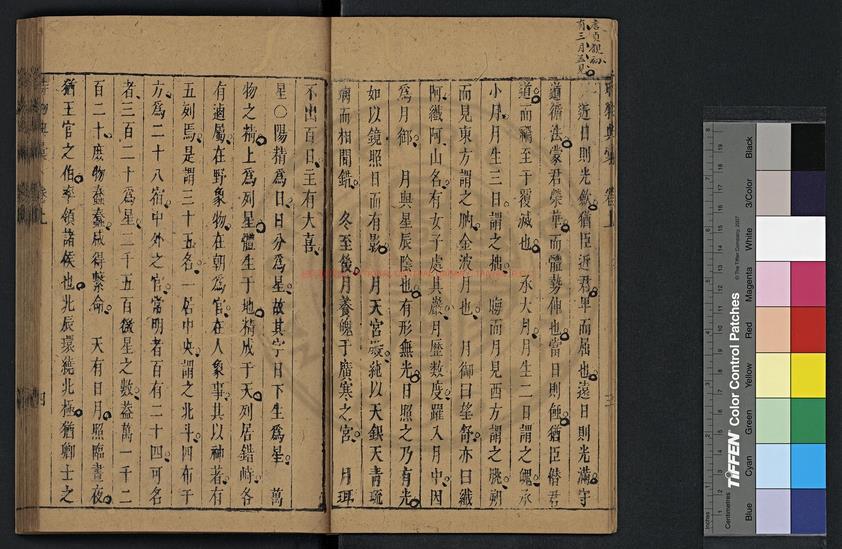 近日則光斂猶臣近君卑而屈也遠日則光滿守
道循法蒙君榮華而體勢伸也當日則蝕猶臣僭君
道而禍至于覆滅也　承大月月生二日謂之魄承
小月月生三日謂之朏　晦而月見西方謂之朓朔
而見東方謂之朒金波月也　月御曰望舒亦曰纖
阿纖阿山名有女子處其巖月歷數度躍入月中因
爲月御　月與星辰陰也有形無光日照之乃有光
如以鏡照日而有影　月天宮殿純以天銀天青琉
璃而相間錯　冬至後月養魄于廣寒之宮　月珥
不出百日主有大喜
星○陽精爲日日分爲星故其字日下生爲星　萬
物之精上爲列星體生于地精成于天列居錯峙各
有逌屬在野象物在朝爲官在人象事其以神著有
五列焉是謂三十五名一居中央謂之北斗四布于
方爲二十八宿中外之官常明者百有二十四可名
者三百二十爲星二千五百微星之數葢萬一千二
百二十庶物蠢蠢咸得繫命　天有日月照臨晝夜
猶王官之伯率領諸侯也北辰環繞北極猶卿士之
四
Inches
Centimetres
TIFFEN Color Control Patches
© The Tiffen Company, 2007
Blue
Cyan
Green
Yellow
Red
Magenta
White
3/Color
Black